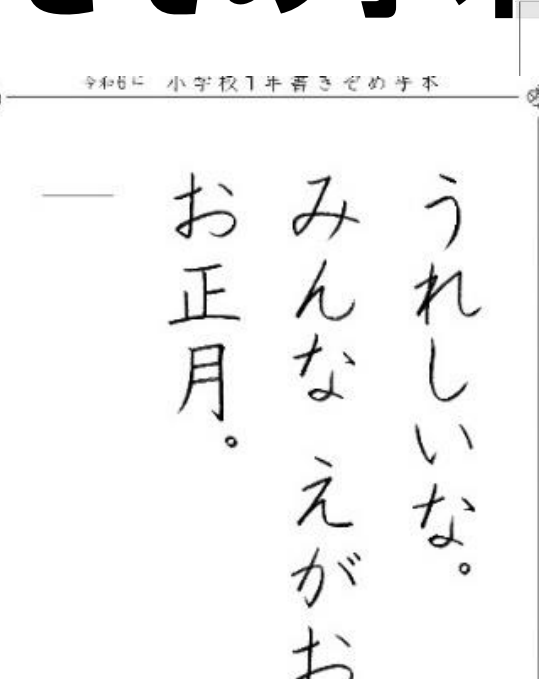 きぞめ手本
令和6年 小学校1年書きぞめ手本
うれしいな。
みんな えがお
お正月。